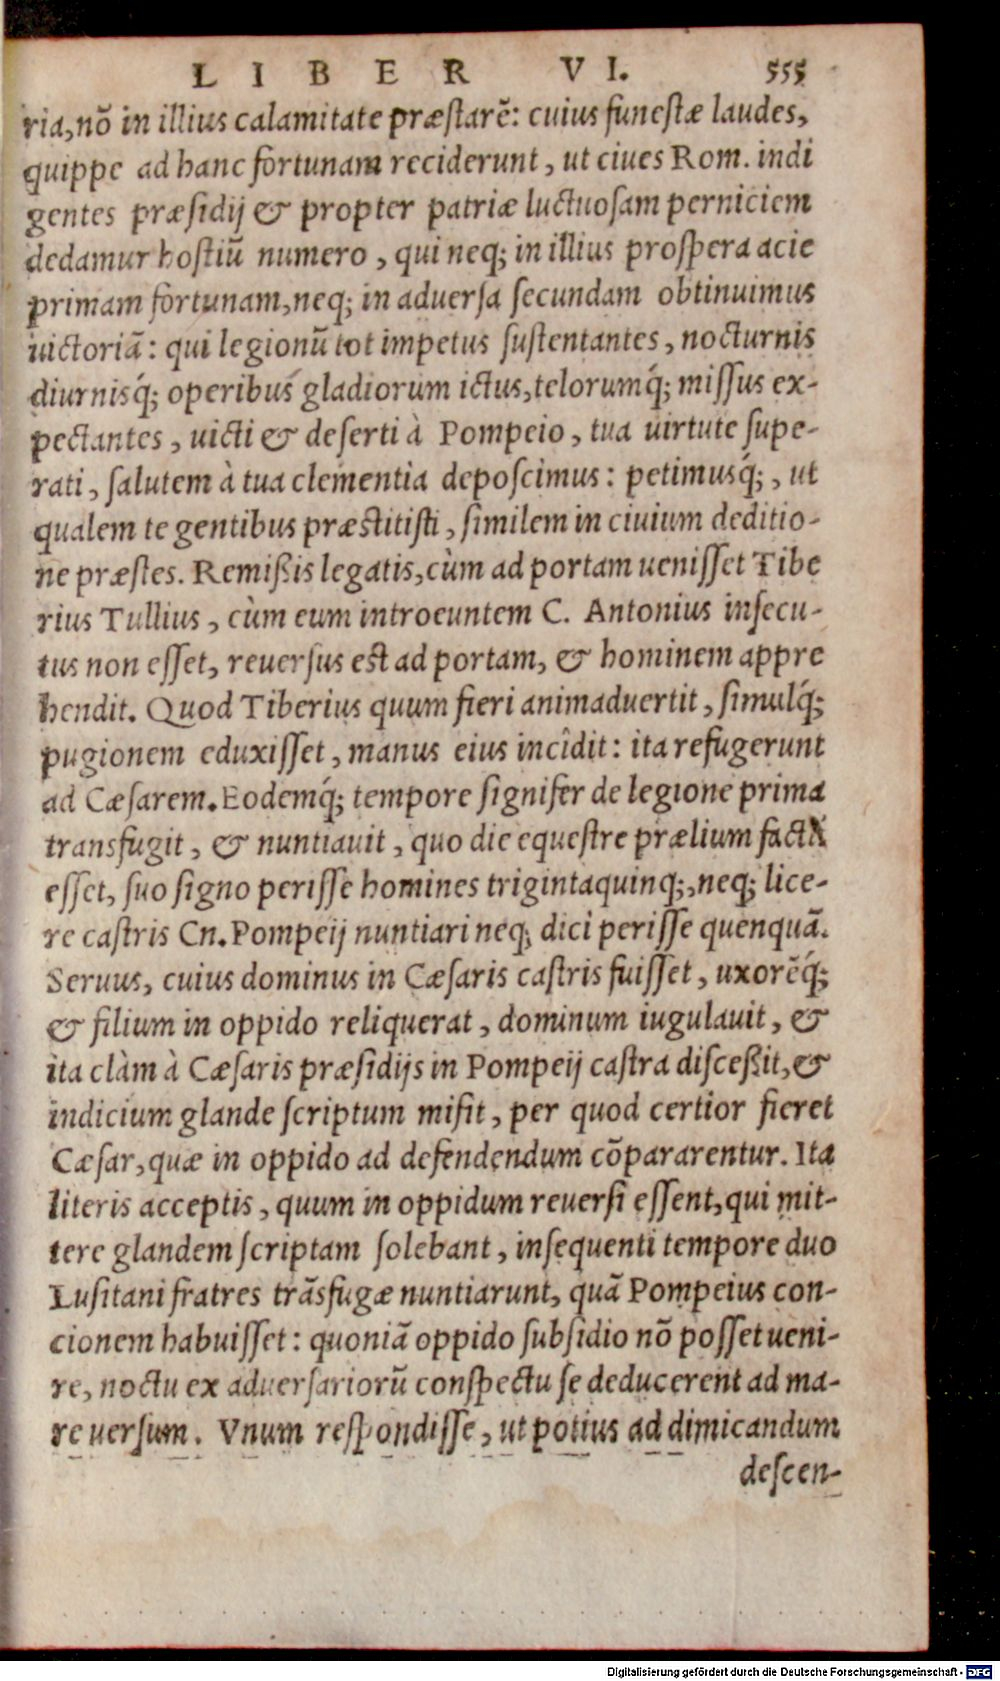 LIBER VI. 555
ria, nõ in illius calamitate præstarẽ: cuius funestæ laudes,
quippe ad hanc fortunam reciderunt, ut ciues Rom. indi
gentes præsidij & propter patriæ luctuosam perniciem
dedamur hostiũ numero, qui neq; in illius prospera acie
primam fortunam, neq; in aduersa secundam obtinuimus
uictoriã: qui legionũ tot impetus sustentantes, nocturnis
diurnisq́; operibus gladiorum ictus, telorumq́; missus ex-
pectantes, uicti & deserti à Pompeio, tua uirtute supe-
rati, salutem à tua clementia deposcimus: petimusq́;, ut
qualem te gentibus præstitisti, similem in ciuium deditio-
ne præstes. Remißis legatis, cùm ad portam uenisset Tibe
rius Tullius, cùm eum introeuntem C. Antonius insecu-
tus non esset, reuersus est ad portam, & hominem appre
hendit. Quod Tiberius quum fieri animaduertit, simulq́;
pugionem eduxisset, manus eius incîdit: ita refugerunt
ad Cæsarem. Eodemq́; tempore signifer de legione prima
transfugit, & nuntiauit, quo die equestre prælium factũ
esset, suo signo perisse homines trigintaquinq;, neq; lice-
re castris Cn. Pompeij nuntiari neq; dici perisse quenquã.
Seruus, cuius dominus in Cæsaris castris fuisset, uxorẽq́;
& filium in oppido reliquerat, dominum iugulauit, &
ita clàm à Cæsaris præsidijs in Pompeij castra disceßit, &
indicium glande scriptum misit, per quod certior fieret
Cæsar, quæ in oppido ad defendendum cõpararentur. Ita
literis acceptis, quum in oppidum reuersi essent, qui mit-
tere glandem scriptam solebant, insequenti tempore duo
Lusitani fratres trãsfugæ nuntiarunt, quã Pompeius con-
cionem habuisset: quoniã oppido subsidio nõ posset ueni-
re, noctu ex aduersariorũ conspectu se deducerent ad ma-
re uersum. Vnum respondisse, ut potius ad dimicandum
descen-
Digitalisierung gefördert durch die Deutsche Forschungsgemeinschaft - DFG